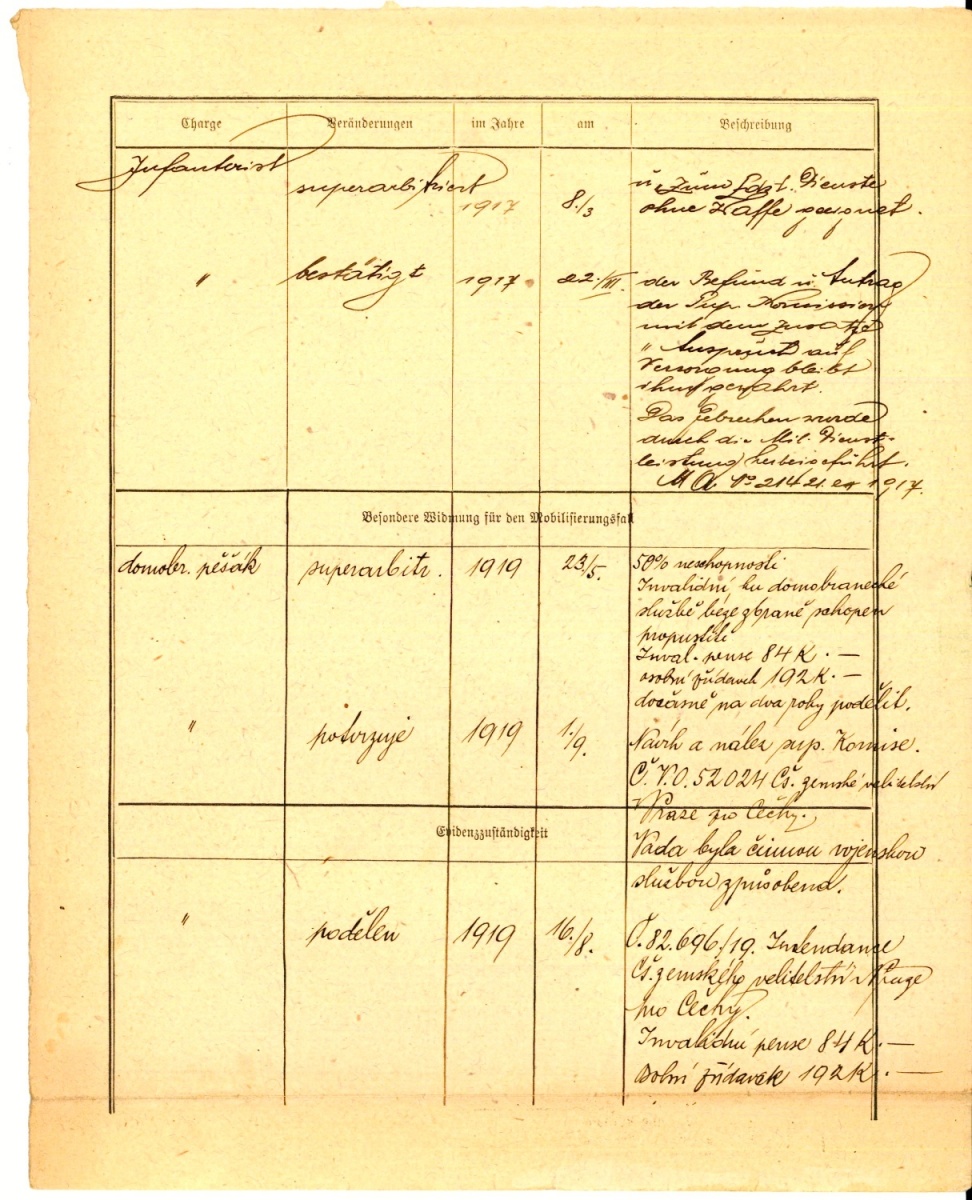 Charge Veränderungen im Jahre am Beschreibung
Infanterist superarbitriert 1917 8./3 u. zum Ldst. Dienste
ohne Waffe geeignet.
" bestätigt 1917 22./III. der Befund u. Antrag
der Sup. Kommission
mit dem Zusatze
" Anspruch auf
Versorgung bleibt
ihm gewahrt.
Das Gebrechen wurde
durch die Mil. Dienst-
leistung herbeigeführt.
M. A. No 21421 ex 1917.
Besondere Widmung für den Mobilisierungsfall
domobr. pěšák superarbitr. 1919 23/5. 50% neschopnosti
Invalidní, ku domobranecké
službě beze zbraně schopen
propustiti
Inval. pense 84 K. —
osobní přídavek 192 K. —
dočasně na dva roky podělil.
" potvrzuje 1919 1./9. Návrh a nález sup. Komise.
Č. V.O. 52024 Čs. zemské velitelství
v Praze pro Čechy.
Evidenzzuständigkeit
Vada byla činnou vojenskou
službou způsobena.
" podělen 1919 16./8. Č. 82.696./19. Intendance
Čs. zemského velitelství v Praze
pro Čechy.
Invalidní pense 84 K. —
osobní přídavek 192 K. —